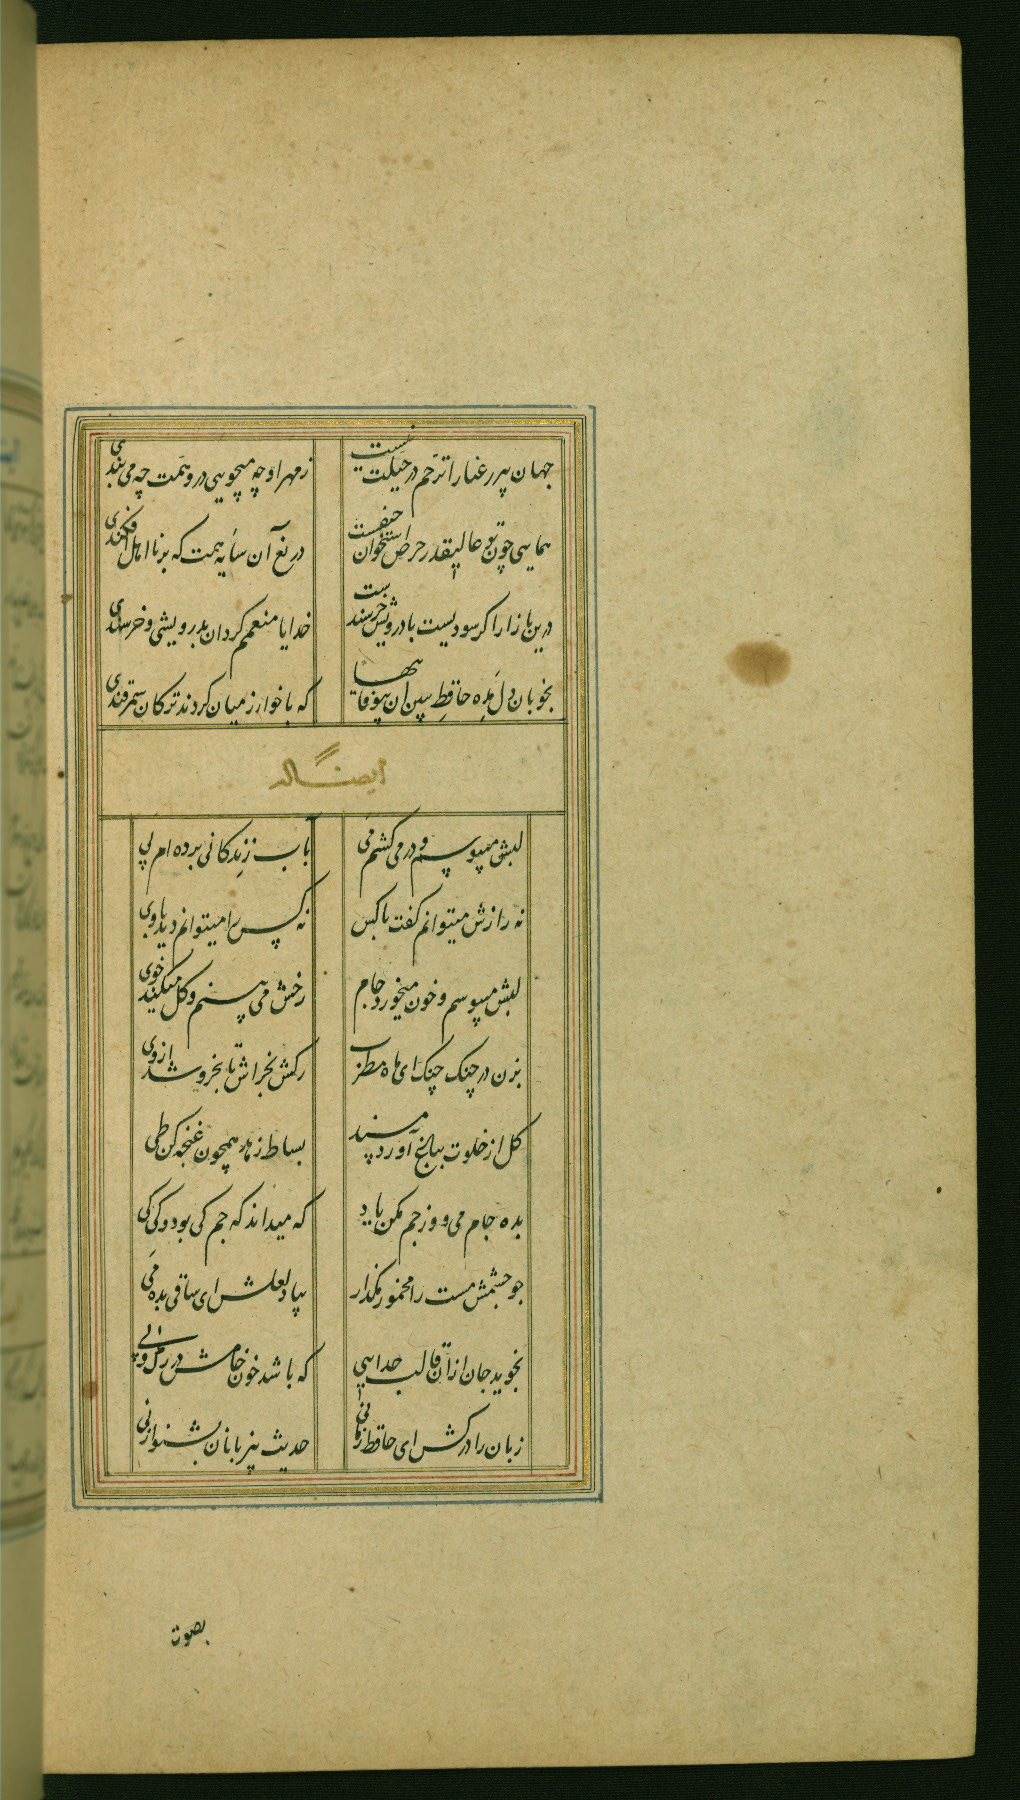 جهان پیر رعنا را ترحم در جبلت نیست
ز مهر او چه میجویی درو همت چه می بندی
همایی چون تو عالیقدر حرص استخوان حیفست
دریغ آن سایه همت که بر نااهل افکندی
درین بازار اگر سودیست با درویش خرسندست
خدایا منعمم گردان بدرویشی و خرسندی
بخوبان دل مده حافظ ببین آن بیوفاییها
که با خوارزمیان کردند ترکان سمرقندی
ایضا له
لبش میبوسم و در می کشم می
بآب زندکانی برده ام پی
نه رازش میتوانم کفت با کس
نه کس را میتوانم دید با وی
لبش میبوسم و خون میخورد جام
رخش می بینم و کل میکند خوی
بزن در چنک چنک ای ماه مطرب
رکش بخراش تا بخروشد از وی
کل از خلوت بباغ آورد مسند
بساط زهد همچون غنچه کن طی
بده جام می و وز جم مکن یاد
که میداند که جم کی بود و کی کی
جو جشمش مست را مخمور مکذار
بیاد لعلش ای ساقی بده می
نجوید جان از آن قالب جدایی
که باشد خون جامش در رک و پی
زبان را درکش ای حافظ زمانی
حدیث بیزبانان بشنو از نی
بصوت